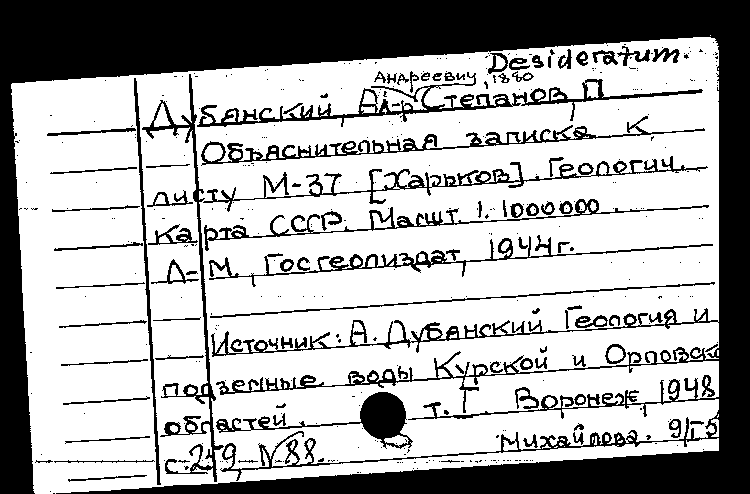 Desideratum.
Андреевич, 1880
Дубянский, Ал-р Степанов, П
Объяснительная записка к
листу М-37 [Харьков]. Геологич.
карта СССР. Масшт. 1:1000000.
Л-М., Госгеолиздат, 1944г.
Источник: А. Дубянский. Геология и
подземные воды Курской и Орловско
областей. т. I. Воронеж, 1948
с. 259, №88. Михайлова. 9/I 5